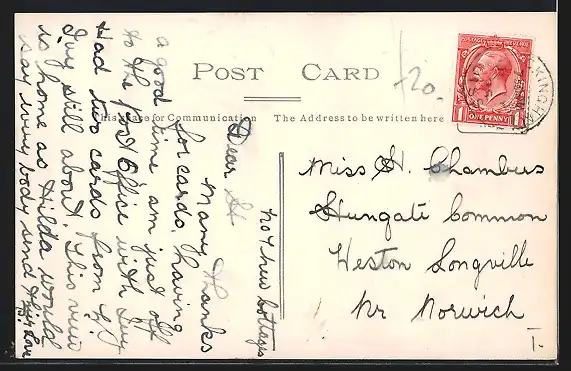 POST CARD
This space for Communication
The Address to be written here
POSTAGE REVENUE
ONE PENNY
KINGHA
20.
No 7 new Cottages
Dear H
many thanks
for cards having
a good time am just off
to the Post Office with Ivy
Had two cards from
Ivy still about. This view
is home as Hilda would
say every body send their love
Miss H. Chambers
Hungate Common
Weston Longville
Nr Norwich
T.